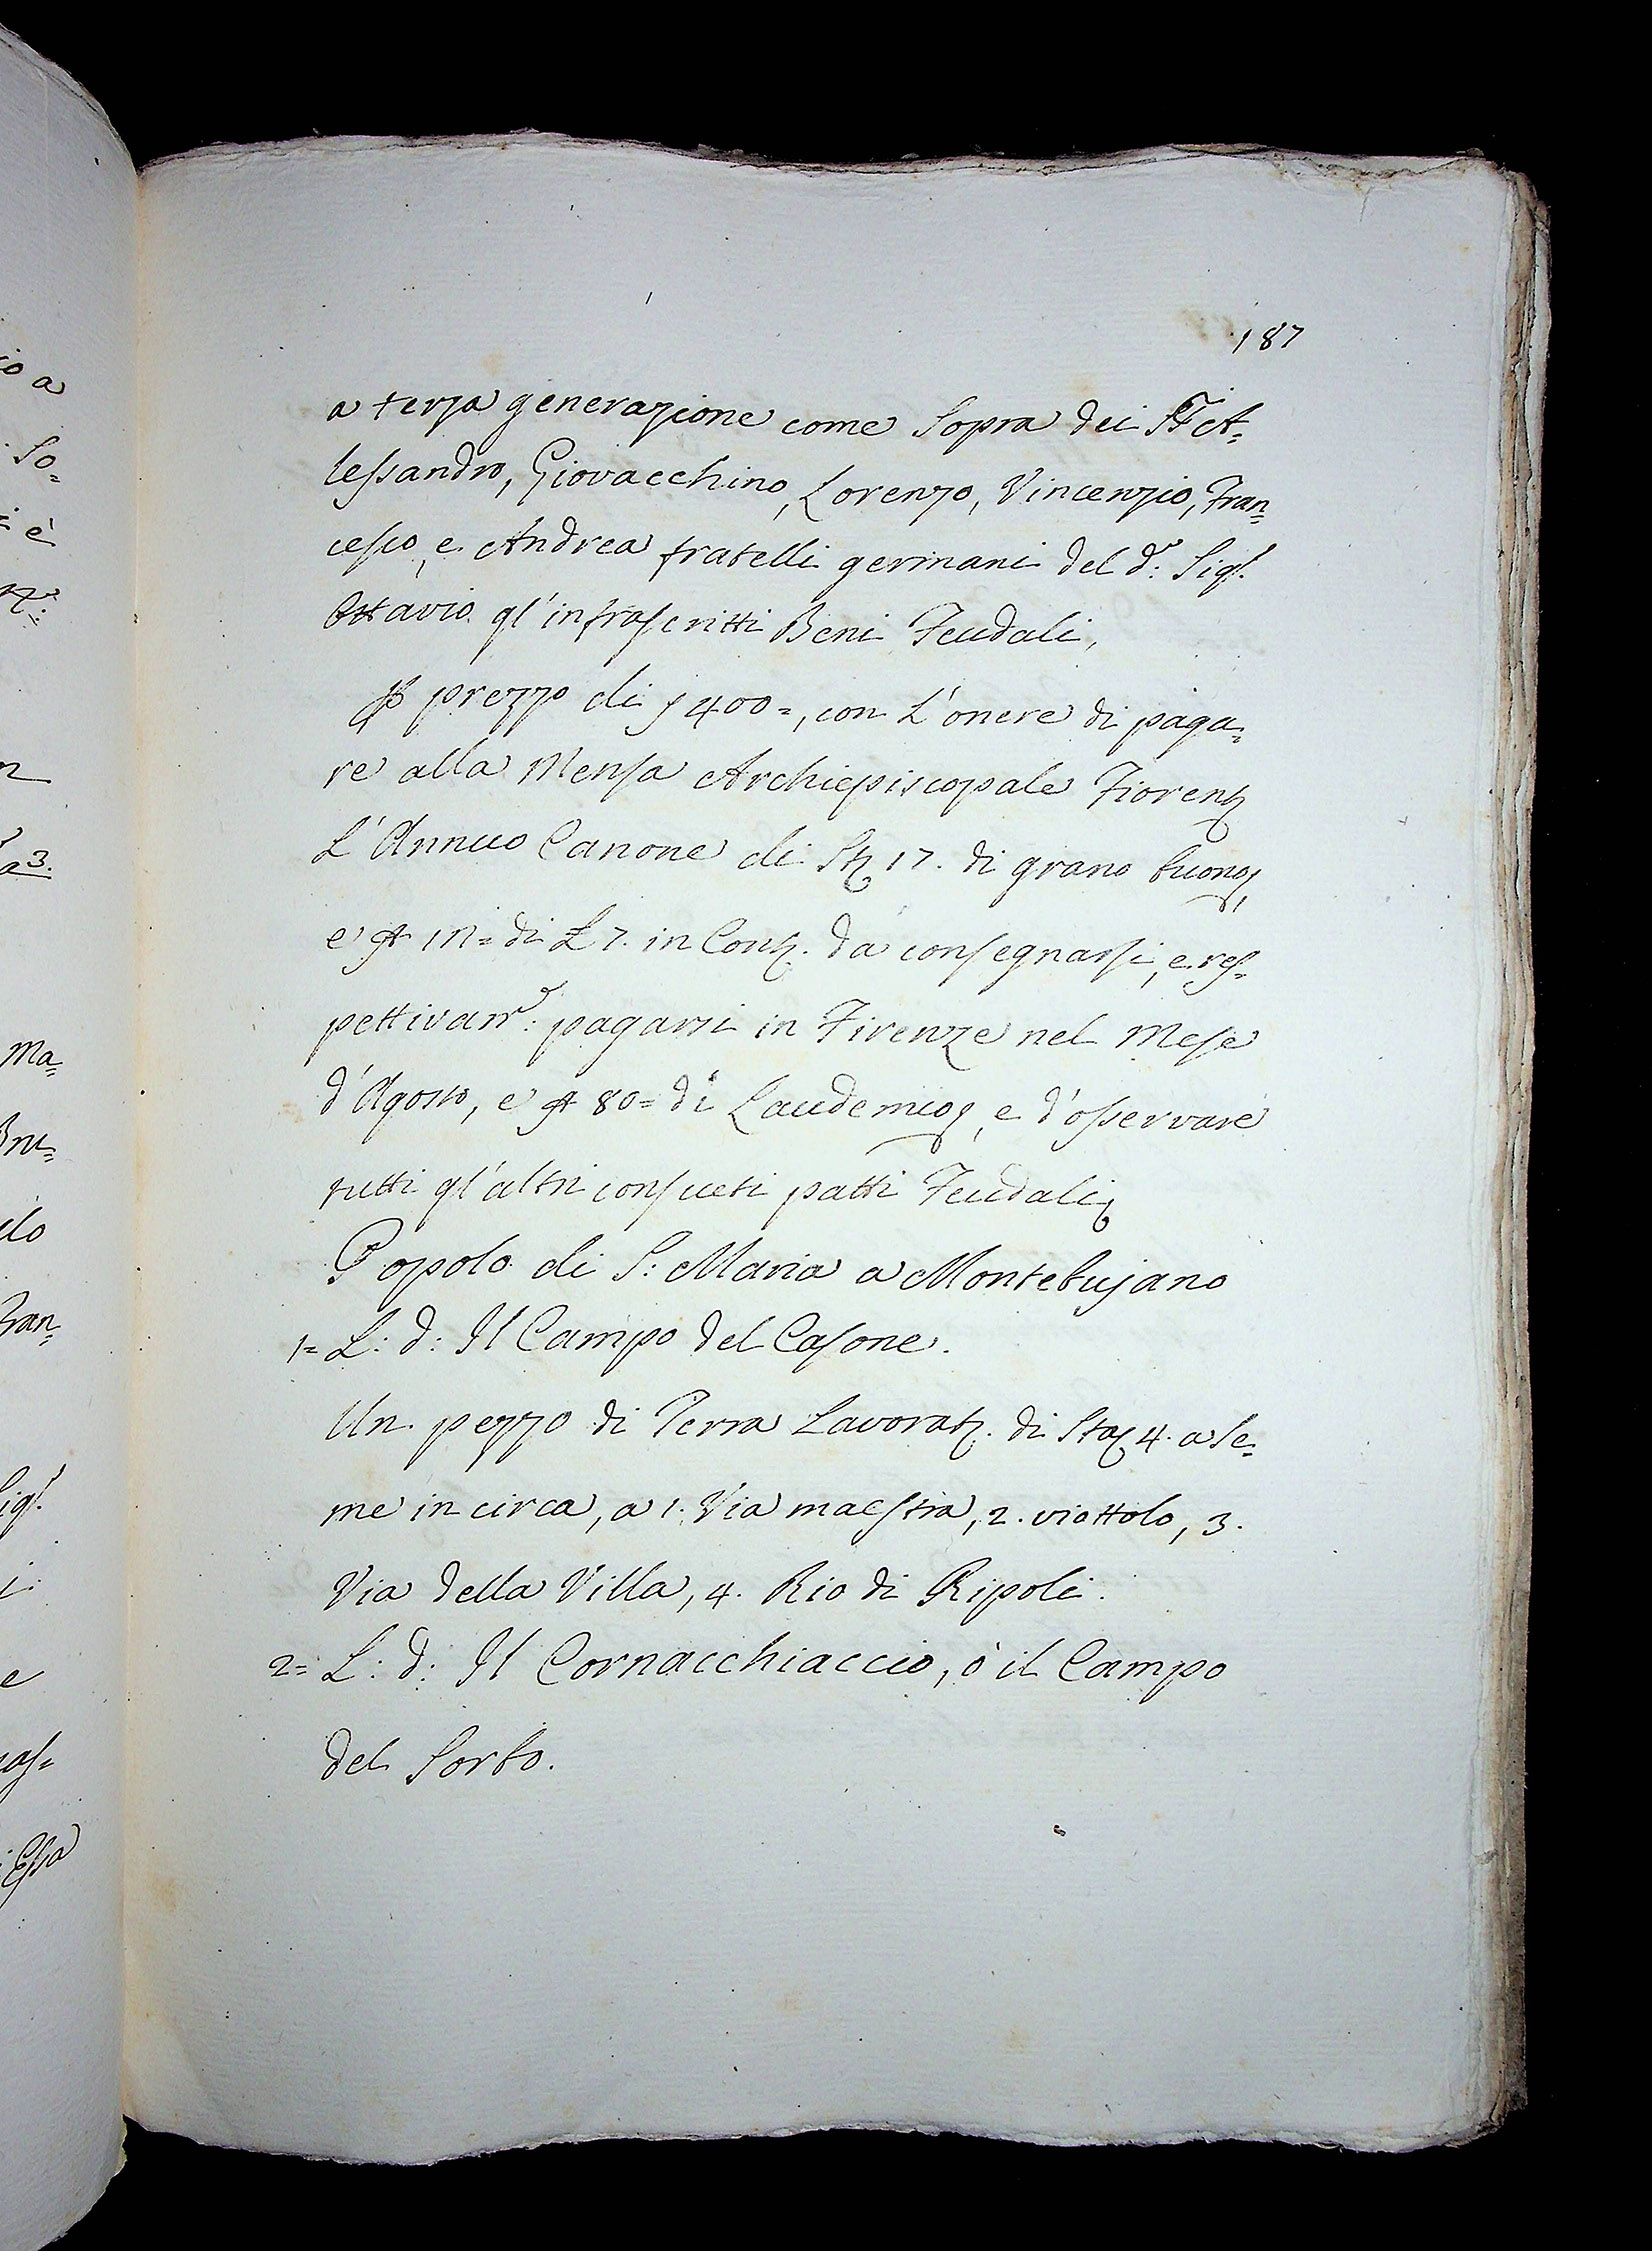 187
a terza generazione come Sopra dei SS.ri A=
lessandro, Giovacchino, Lorenzo, Vincenzio, Fran=
cesco, e Andrea fratelli germani del d.º: Sig.r
Ottavio gl'infrascritti Beni Feudali,
prezzo di 400=, con L'onere di paga=
re alla Mensa Archiepiscopale Fiorent.
L'Annuo Canone di St. 17. di grano buono,
e di £ 7. in Cont. da consegnarsi, e res=
pettivam.e: pagarsi in Firenze nel Mese
d'Agosto, e 80= di Laudemio, e d'osservare
tutti gl'altri consueti patti Feudali
Popolo di S: Maria a Montebujano
1= L: d: Il Campo del Casone.
Un pezzo di Terra Lavorat. di Sta. 4. a Se=
me in circa, a 1. Via maestra, 2. viottolo, 3.
Via della Villa, 4. Rio di Ripoli.
2= L: d: Il Cornacchiaccio, ò il Campo
del Sorbo.
io a
So=
è
n
a 3.
Ma=
Bru=
Fran=
Sig.r
e
Essa